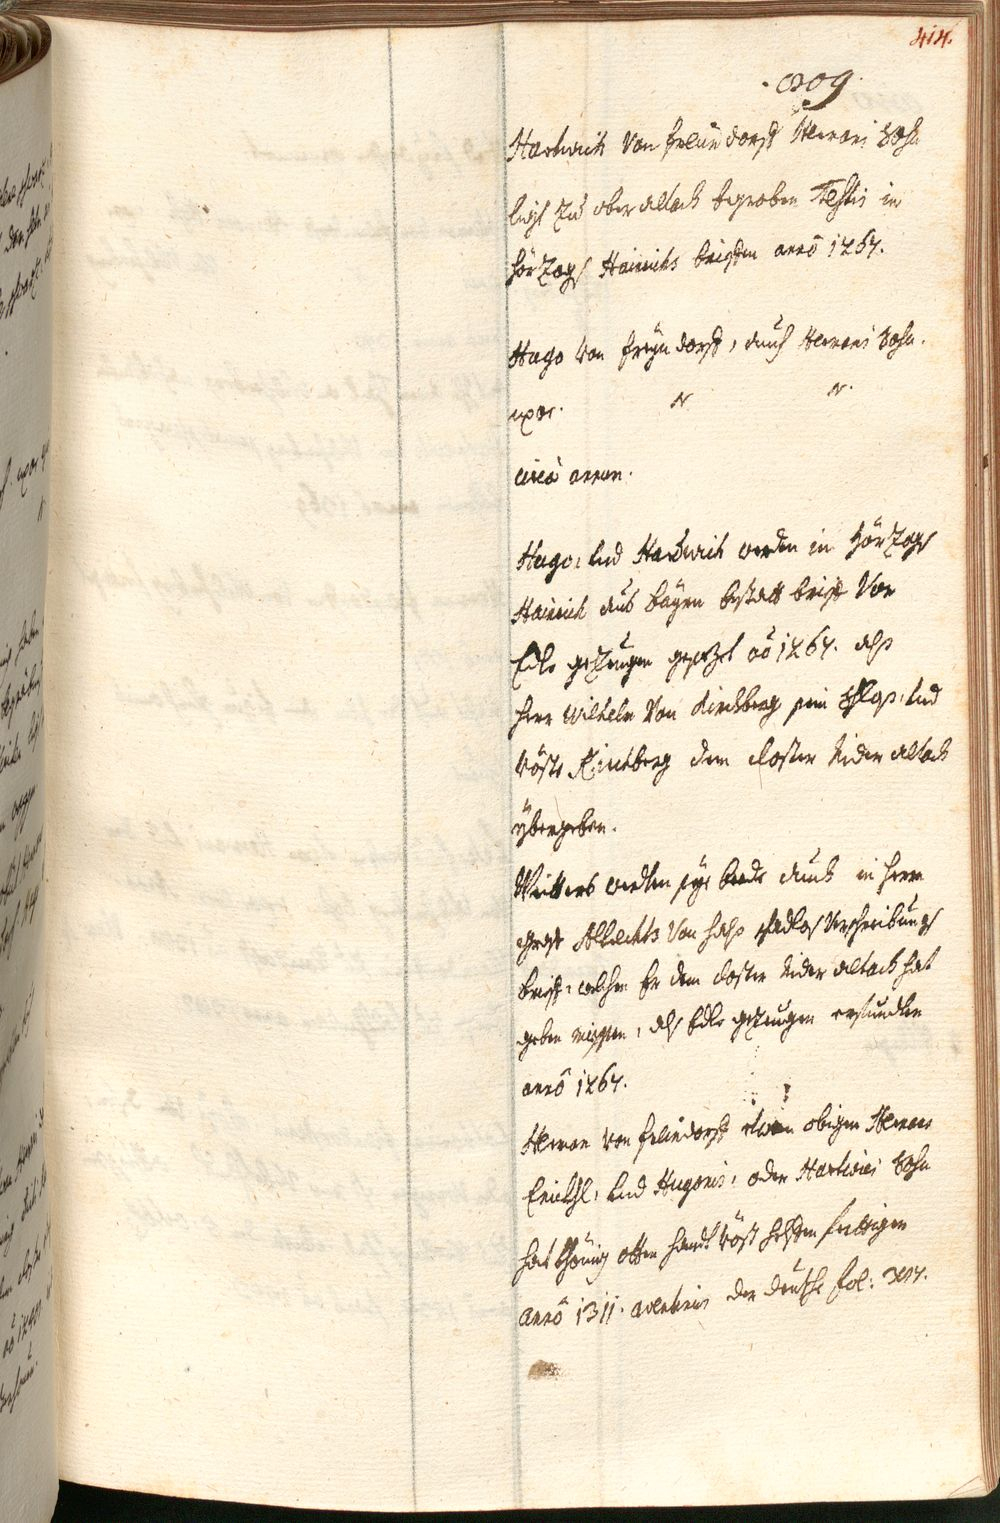 414.
Hartwich Von Freundorff Hermani Sohn
ligt zu ober altach begraben Testis in
Hörzogs Hainrichs brieffen anno 1267.
Hugo Von Freyndorff, auch Hermani Sohn.
uxor. N N.
circa annum.
Hugo, und Hartwich werden in Hörzogs
Hainrich aus Bayrn bestatt brieff Vor
Edle gezeugen gesezet ao 1267. als
Herr Wilhelm Von Kirchberg sein Schlos, und
Vöste dem Closter Nider altach
ybergeben.
Weitters werden sye beede auch in Herrn
graf Albrechts Von Hals schadlos Verschreibungs
brieff, welchen Er dem Closter Nider altach hat
geben miessen, als Edle gezeugen erfunden
anno 1267.
Herman von Freundorff obigen Herman
Enickhl, und Hugonis, oder Hartwici Sohn
hat Khönig otten handt Vöst helffen fertigen
anno 1311. aventinus der deutsche fol: